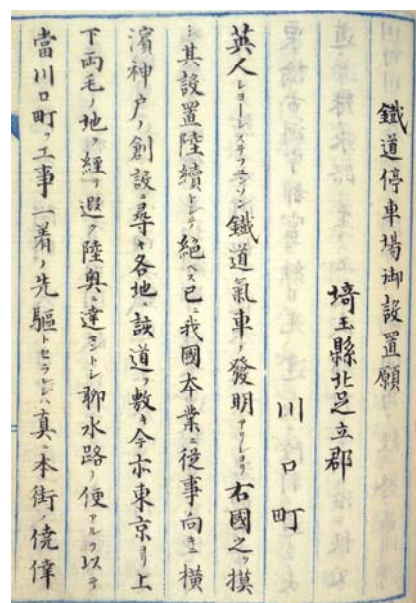 鐵道停車場御設置願
埼玉縣北足立郡
川口町
英人ショージステブンソン鐵道氣車ノ發明アリシヨリ右國之ヲ摸
シ其設置陸續トシテ絶ヘス已ニ我國本業ニ從事向キニ横
濱神戸ノ創設ニ尋キ各地ニ該道ヲ敷キ今亦東京ヨリ上
下両毛ノ地ヲ經テ遐ク陸奥ニ達セントシ聊水路ノ便アルヲ以テ
當川口町ヲ工事一着ノ先驅トセラレシハ真ニ本街ノ僥倖